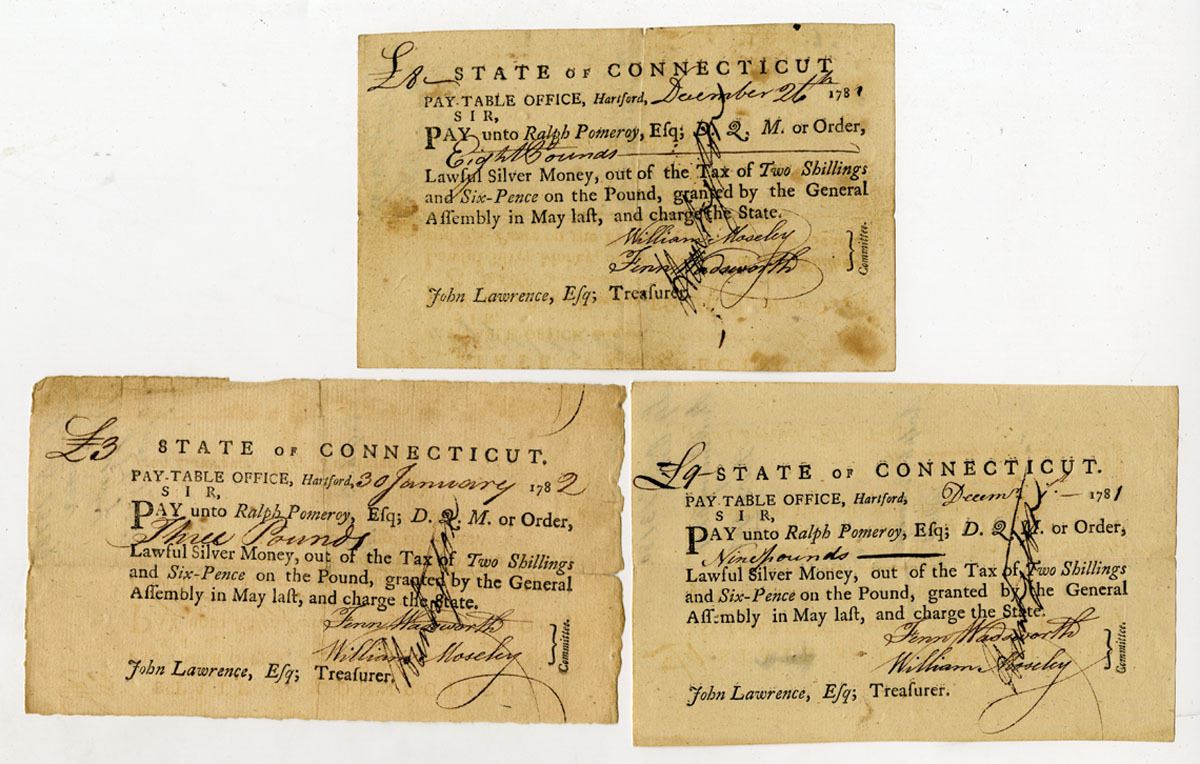 £8 STATE OF CONNECTICUT
PAY-TABLE OFFICE, Hartford, December 26th 1781
SIR,
PAY unto Ralph Pomeroy, Esq; D. Q. M. or Order,
Eight Pounds
Lawful Silver Money, out of the Tax of Two Shillings
and Six-Pence on the Pound, granted by the General
Aſſembly in May laſt, and charge the State.
William Moseley
Fenn Wadsworth
Committee.
John Lawrence, Eſq; Treaſurer.
£3 STATE OF CONNECTICUT.
PAY-TABLE OFFICE, Hartford, 30 January 1782
SIR,
PAY unto Ralph Pomeroy, Eſq; D. Q. M. or Order,
Three Pounds
Lawful Silver Money, out of the Tax of Two Shillings
and Six-Pence on the Pound, granted by the General
Aſſembly in May laſt, and charge the State.
Fenn Wadsworth
William Moseley
Committee.
John Lawrence, Eſq; Treaſurer.
£9 STATE OF CONNECTICUT.
PAY-TABLE OFFICE, Hartford, Decemr 1781
SIR,
PAY unto Ralph Pomeroy, Eſq; D. Q. M. or Order,
Nine pounds
Lawful Silver Money, out of the Tax of Two Shillings
and Six-Pence on the Pound, granted by the General
Aſſembly in May laſt, and charge the State.
Fenn Wadsworth
William Moseley
Committee.
John Lawrence, Eſq; Treaſurer.